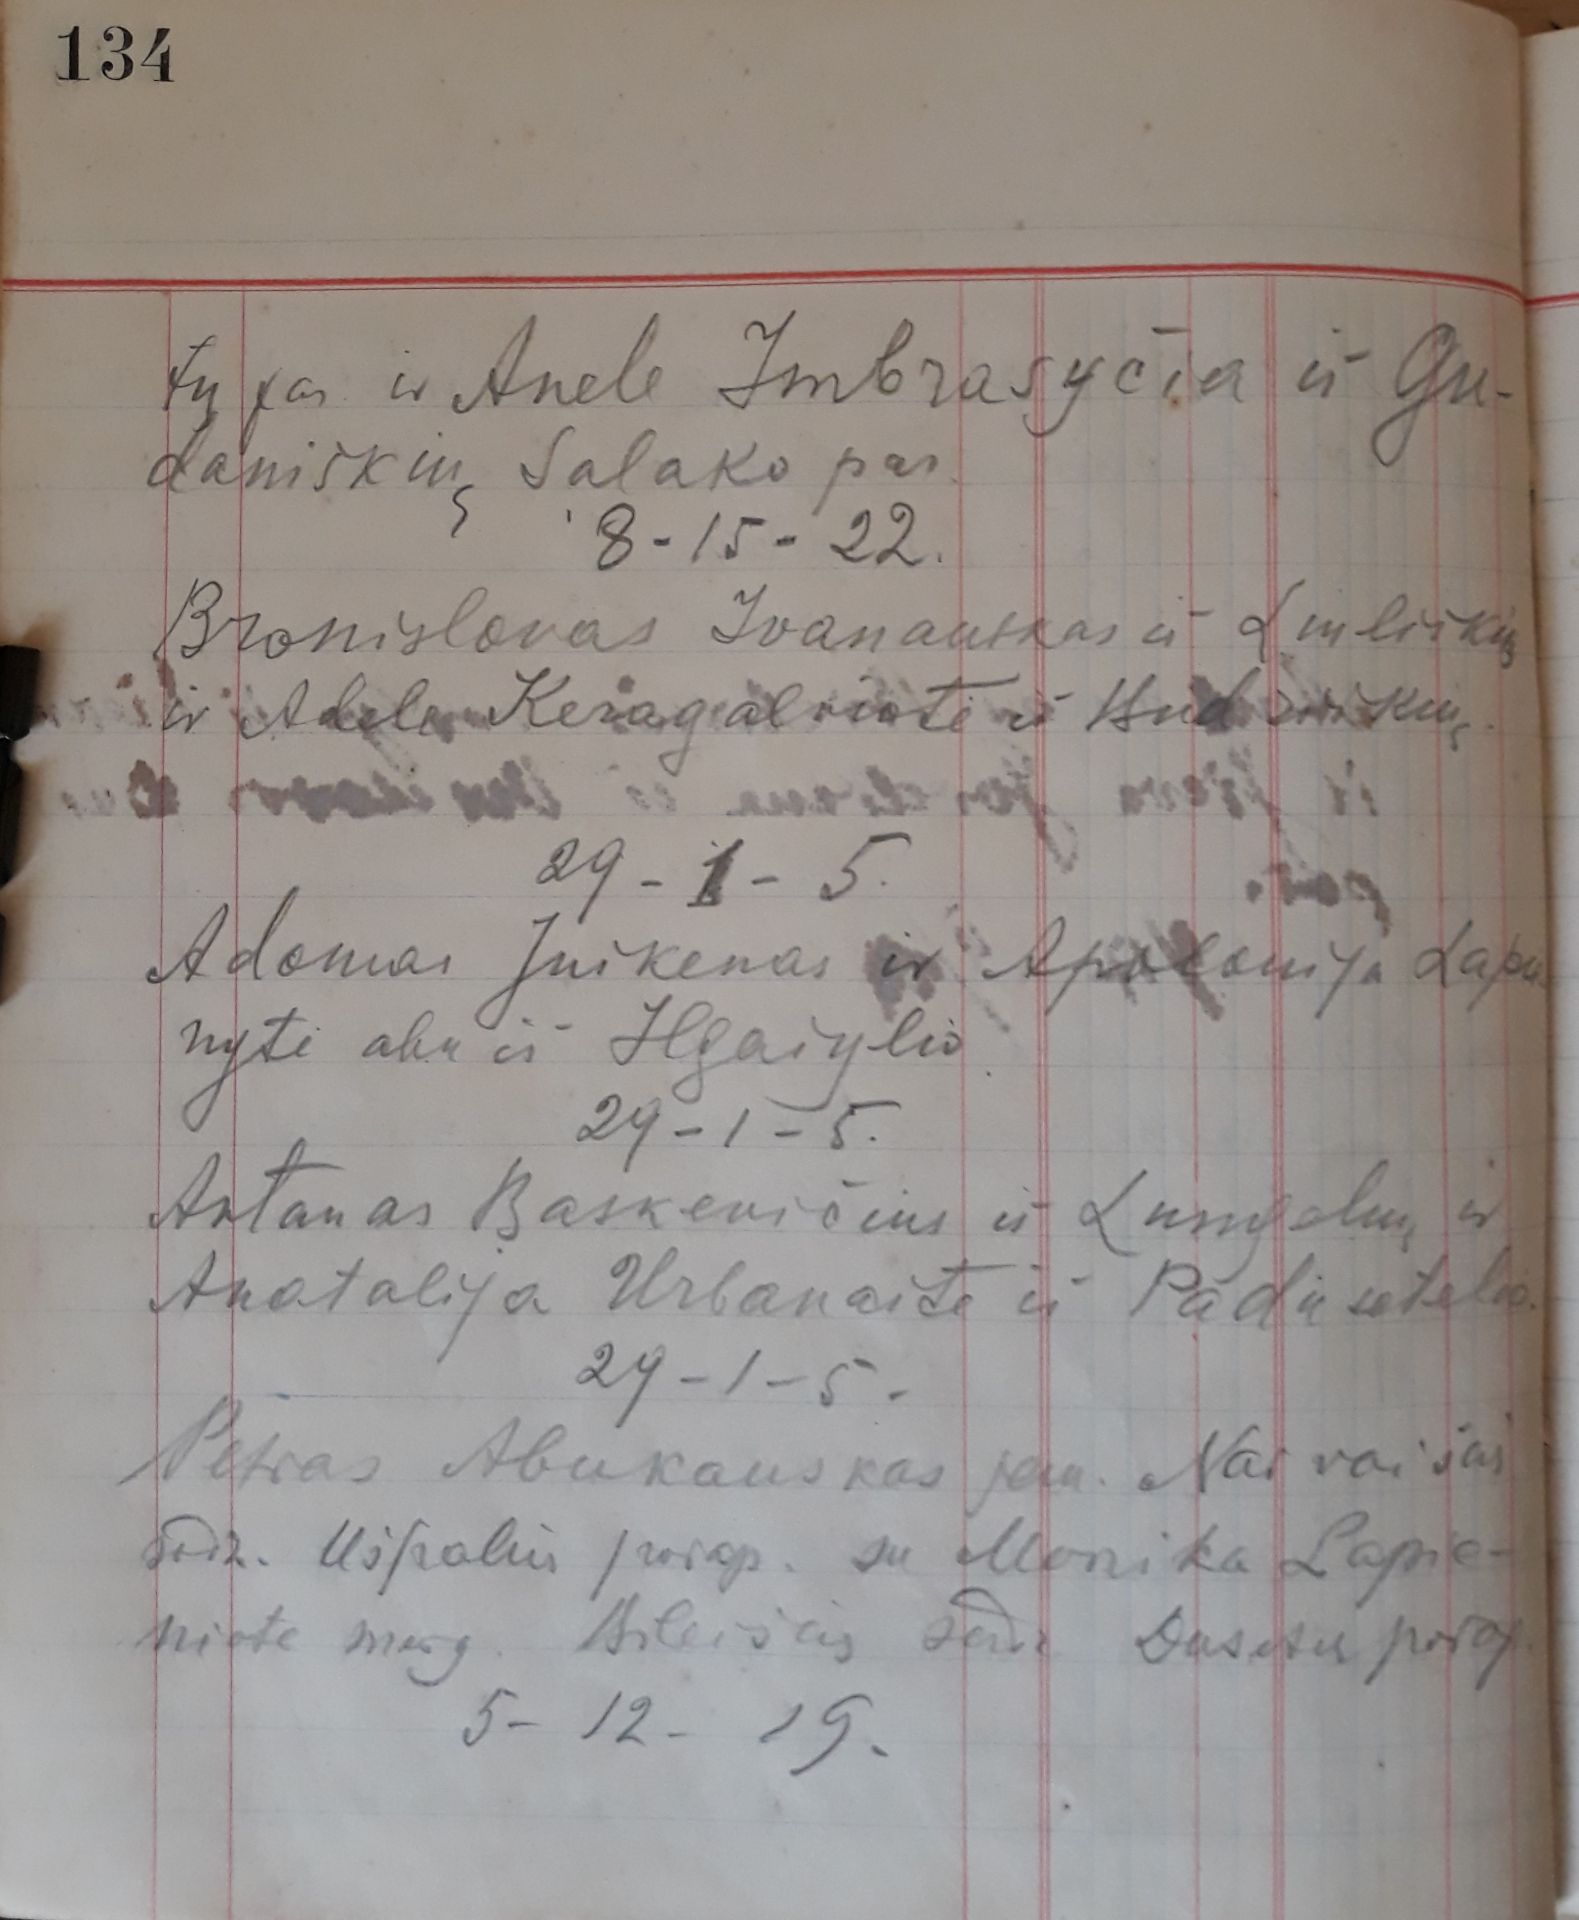 134
tų par. ir Anelė Imbrasyčia iš Gu-
daniškių Salako par.
8-15-22.
Bronislovas Ivanauskas iš
ir Adelė Keragalviutė iš
29-1-5.
Adomas Juškenas ir Apolonija Lapė-
nytė abu iš Ilgašylio.
29-1-5.
Antanas Baskevičius iš ir
Anatalija Urbanaitė iš Padusetėlio.
29-1-5-
Petras Abukauskas jau. Narvaišių
sodž. Ušpolių parap. su Monika Lapie-
niote merg. Bileišių sodž Dusetų parap.
5-12-19.